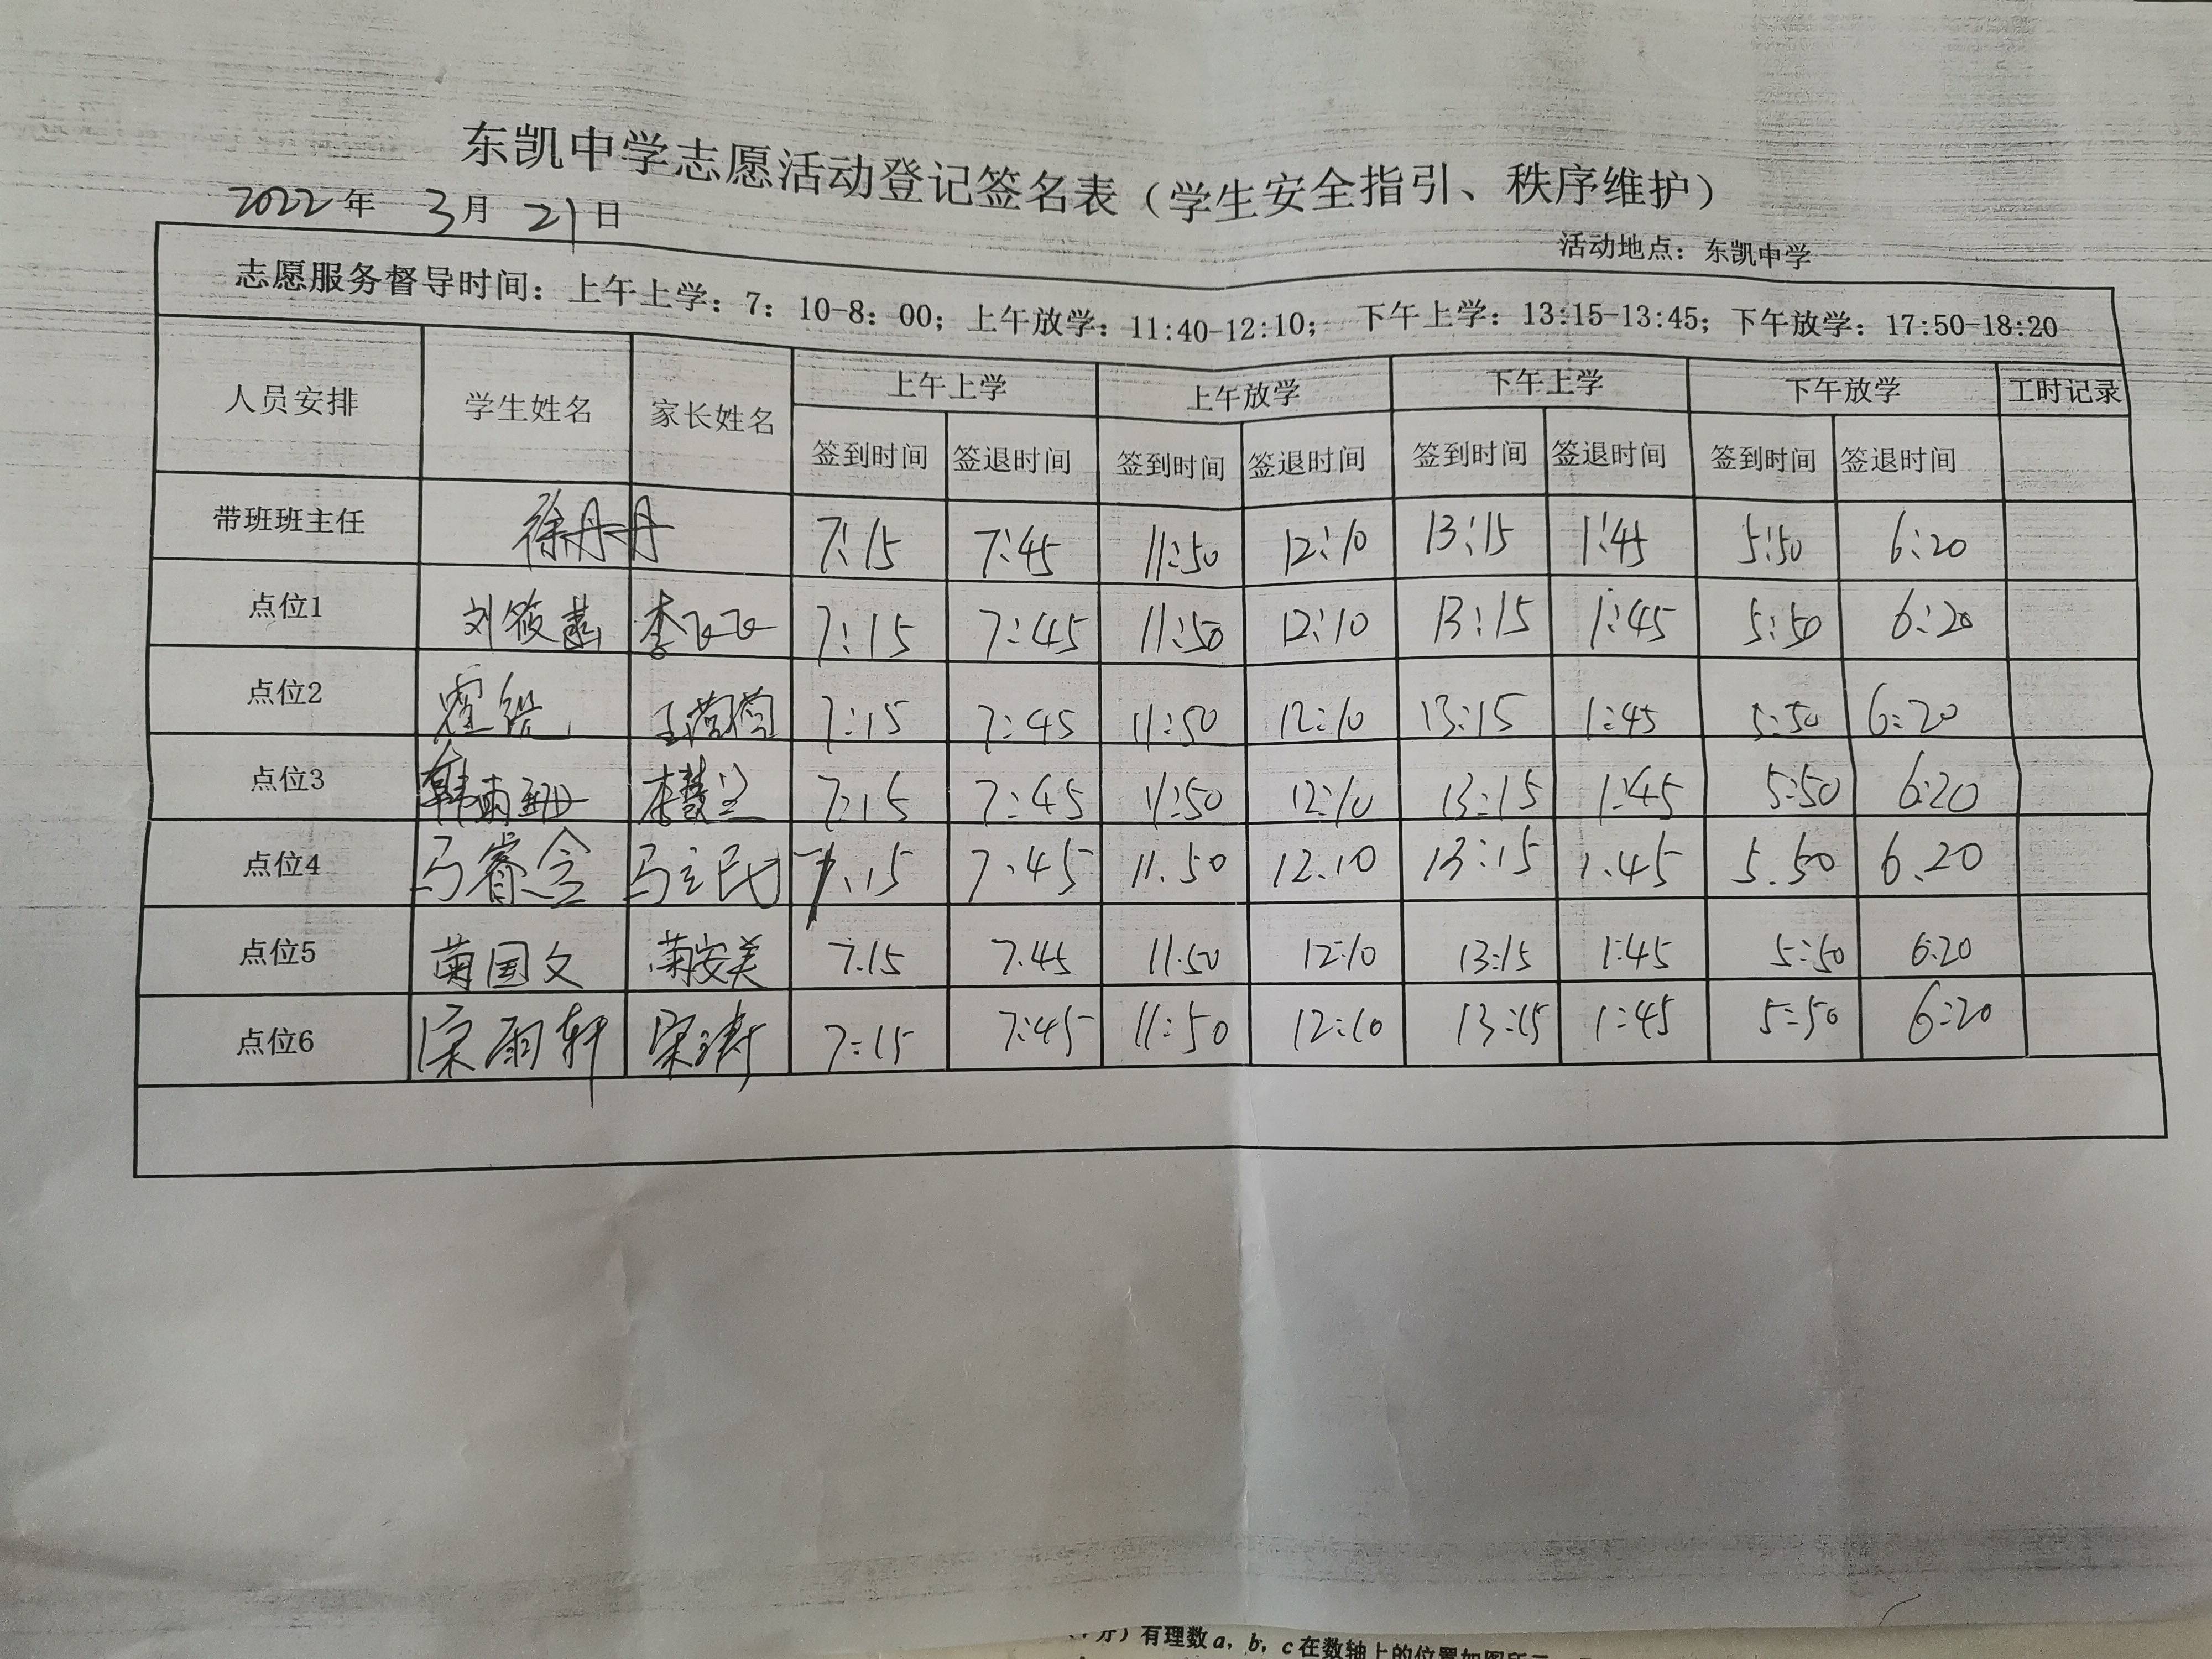 东凯中学志愿活动登记签名表（学生安全指引、秩序维护）
2022年 3月 21日
活动地点：东凯中学
志愿服务督导时间：上午上学：7：10-8：00；上午放学：11:40-12:10； 下午上学：13:15-13:45；下午放学：17:50-18:20
人员安排 学生姓名 家长姓名 上午上学 上午放学 下午上学 下午放学 工时记录
签到时间 签退时间 签到时间 签退时间 签到时间 签退时间 签到时间 签退时间
带班班主任 徐丹丹 7:15 7:45 11:50 12:10 13:15 1:45 5:50 6:20
点位1 刘筱 李飞飞 7:15 7:45 11:50 12:10 13:15 1:45 5:50 6:20
点位2 霍 王 7:15 7:45 11:50 12:10 13:15 1:45 5:50 6:20
点位3 韩雨珊 李慧兰 7:15 7:45 11:50 12:10 13:15 1:45 5:50 6:20
点位4 马睿含 马立民 7.15 7.45 11.50 12.10 13:15 1.45 5.50 6.20
点位5 蔺国文 蔺安美 7:15 7:45 11:50 12:10 13:15 1:45 5:50 6:20
点位6 宋雨轩 宋涛 7:15 7:45 11:50 12:10 13:15 1:45 5:50 6:20
分）有理数a，b，c在数轴上的位置如图所示